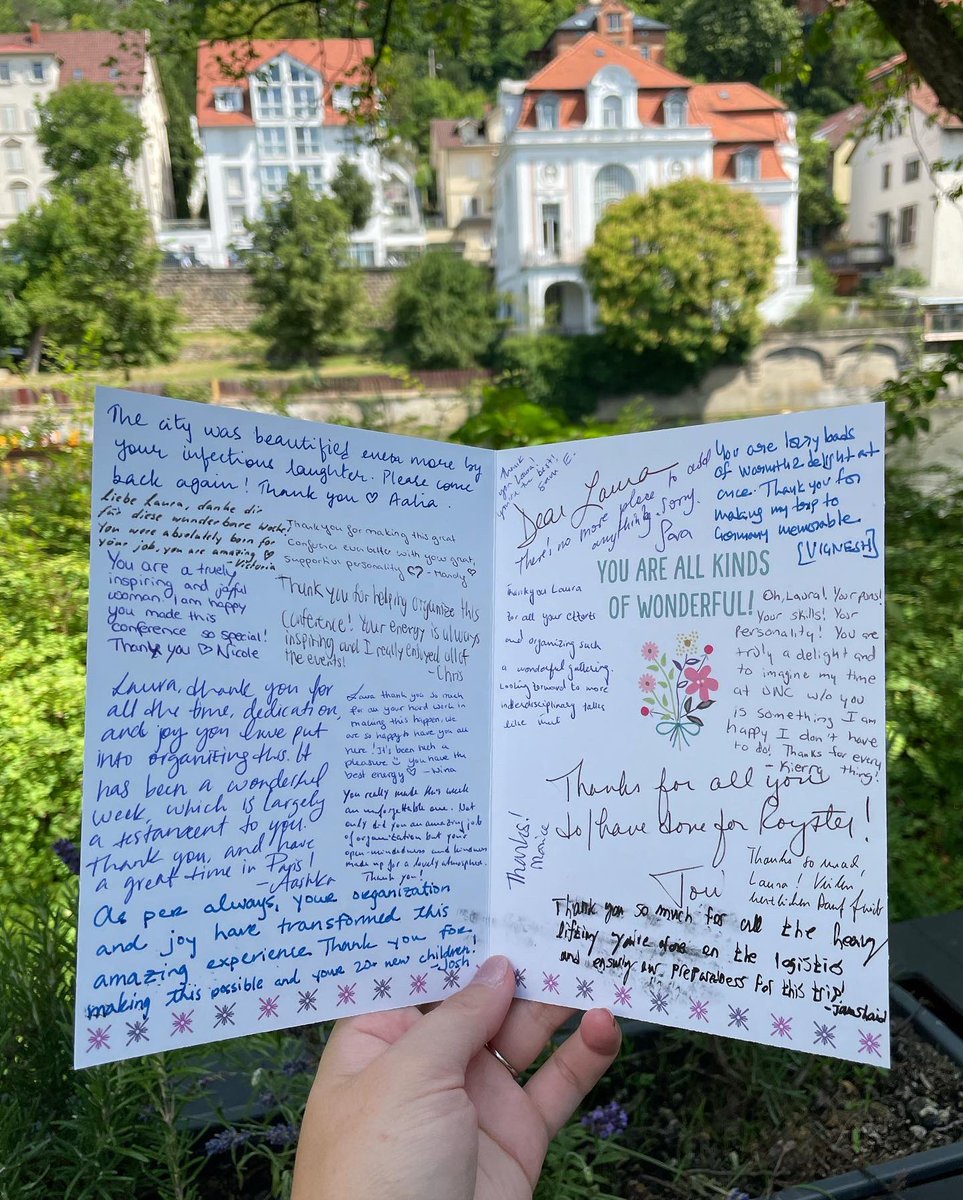 The city was beautified even more by
your infectious laughter. Please come
back again! Thank you ♡ Aalia.
Liebe Laura, danke dir
für diese wunderbare Woche
You were absolutely born for
your job, you are amazing ♡
- Victoria
Thank you for making this great
Conference even better with your great,
Supportive personality ♡♡ - Mandy ♡
You are a truely
inspiring and joyful
woman, I am happy
you made this
conference so special!
Thank you ♡ Nicole
Thank you for helping organize this
Conference! Your energy is always
inspiring and I really enjoyed all of
the events!
Chris
Laura, thank you for
all the time, dedication,
and joy you have put
into organizing this. It
has been a wonderful
week, which is largely
a testament to you.
Thank you, and have
a great time in Paris!
- Aashka
Laura thank you so much
for all your hard work in
making this happen, we
are so happy to have you all
here! It's been such a
pleasure ☺ you have the
best energy ♡ - Nina
You really made this week
an unforgettable one. Not
only did you an amazing job
of organization but your
open-mindedness and kindness
made up for a lovely atmosphere.
Thank you!
As per always, your organization
and joy have transformed this
amazing experience. Thank you for
making this possible and your 20+ new children!
- Josh
Thank
you Laura!
You're the best!
E.
Dear Laura
There's no more place to add
anything, sorry.
Sara
You are lazy bads
of warmth & delight at
once. Thank you for
making my trip to
Germany memorable.
[VIGNESH]
YOU ARE ALL KINDS
OF WONDERFUL!
Thank you Laura
for all your efforts
and organizing such
a wonderful gathering.
Looking forward to more
interdisciplinary talks
like
Oh, Laura! Your puns!
Your skills! Your
Personality! You are
truly a delight and
to imagine my time
at UNC w/o you
is something I am
happy I don't have
to do! Thanks for every
thing!
- Kierra
Thanks for all you
do/have done for Royster!
Tori
Thanks!
Thanks so much,
Laura! Vielen,
herzlichen Dank für
Thank you so much for all the heavy
lifting you've done on the logistics
and ensuring our preparedness for this trip!